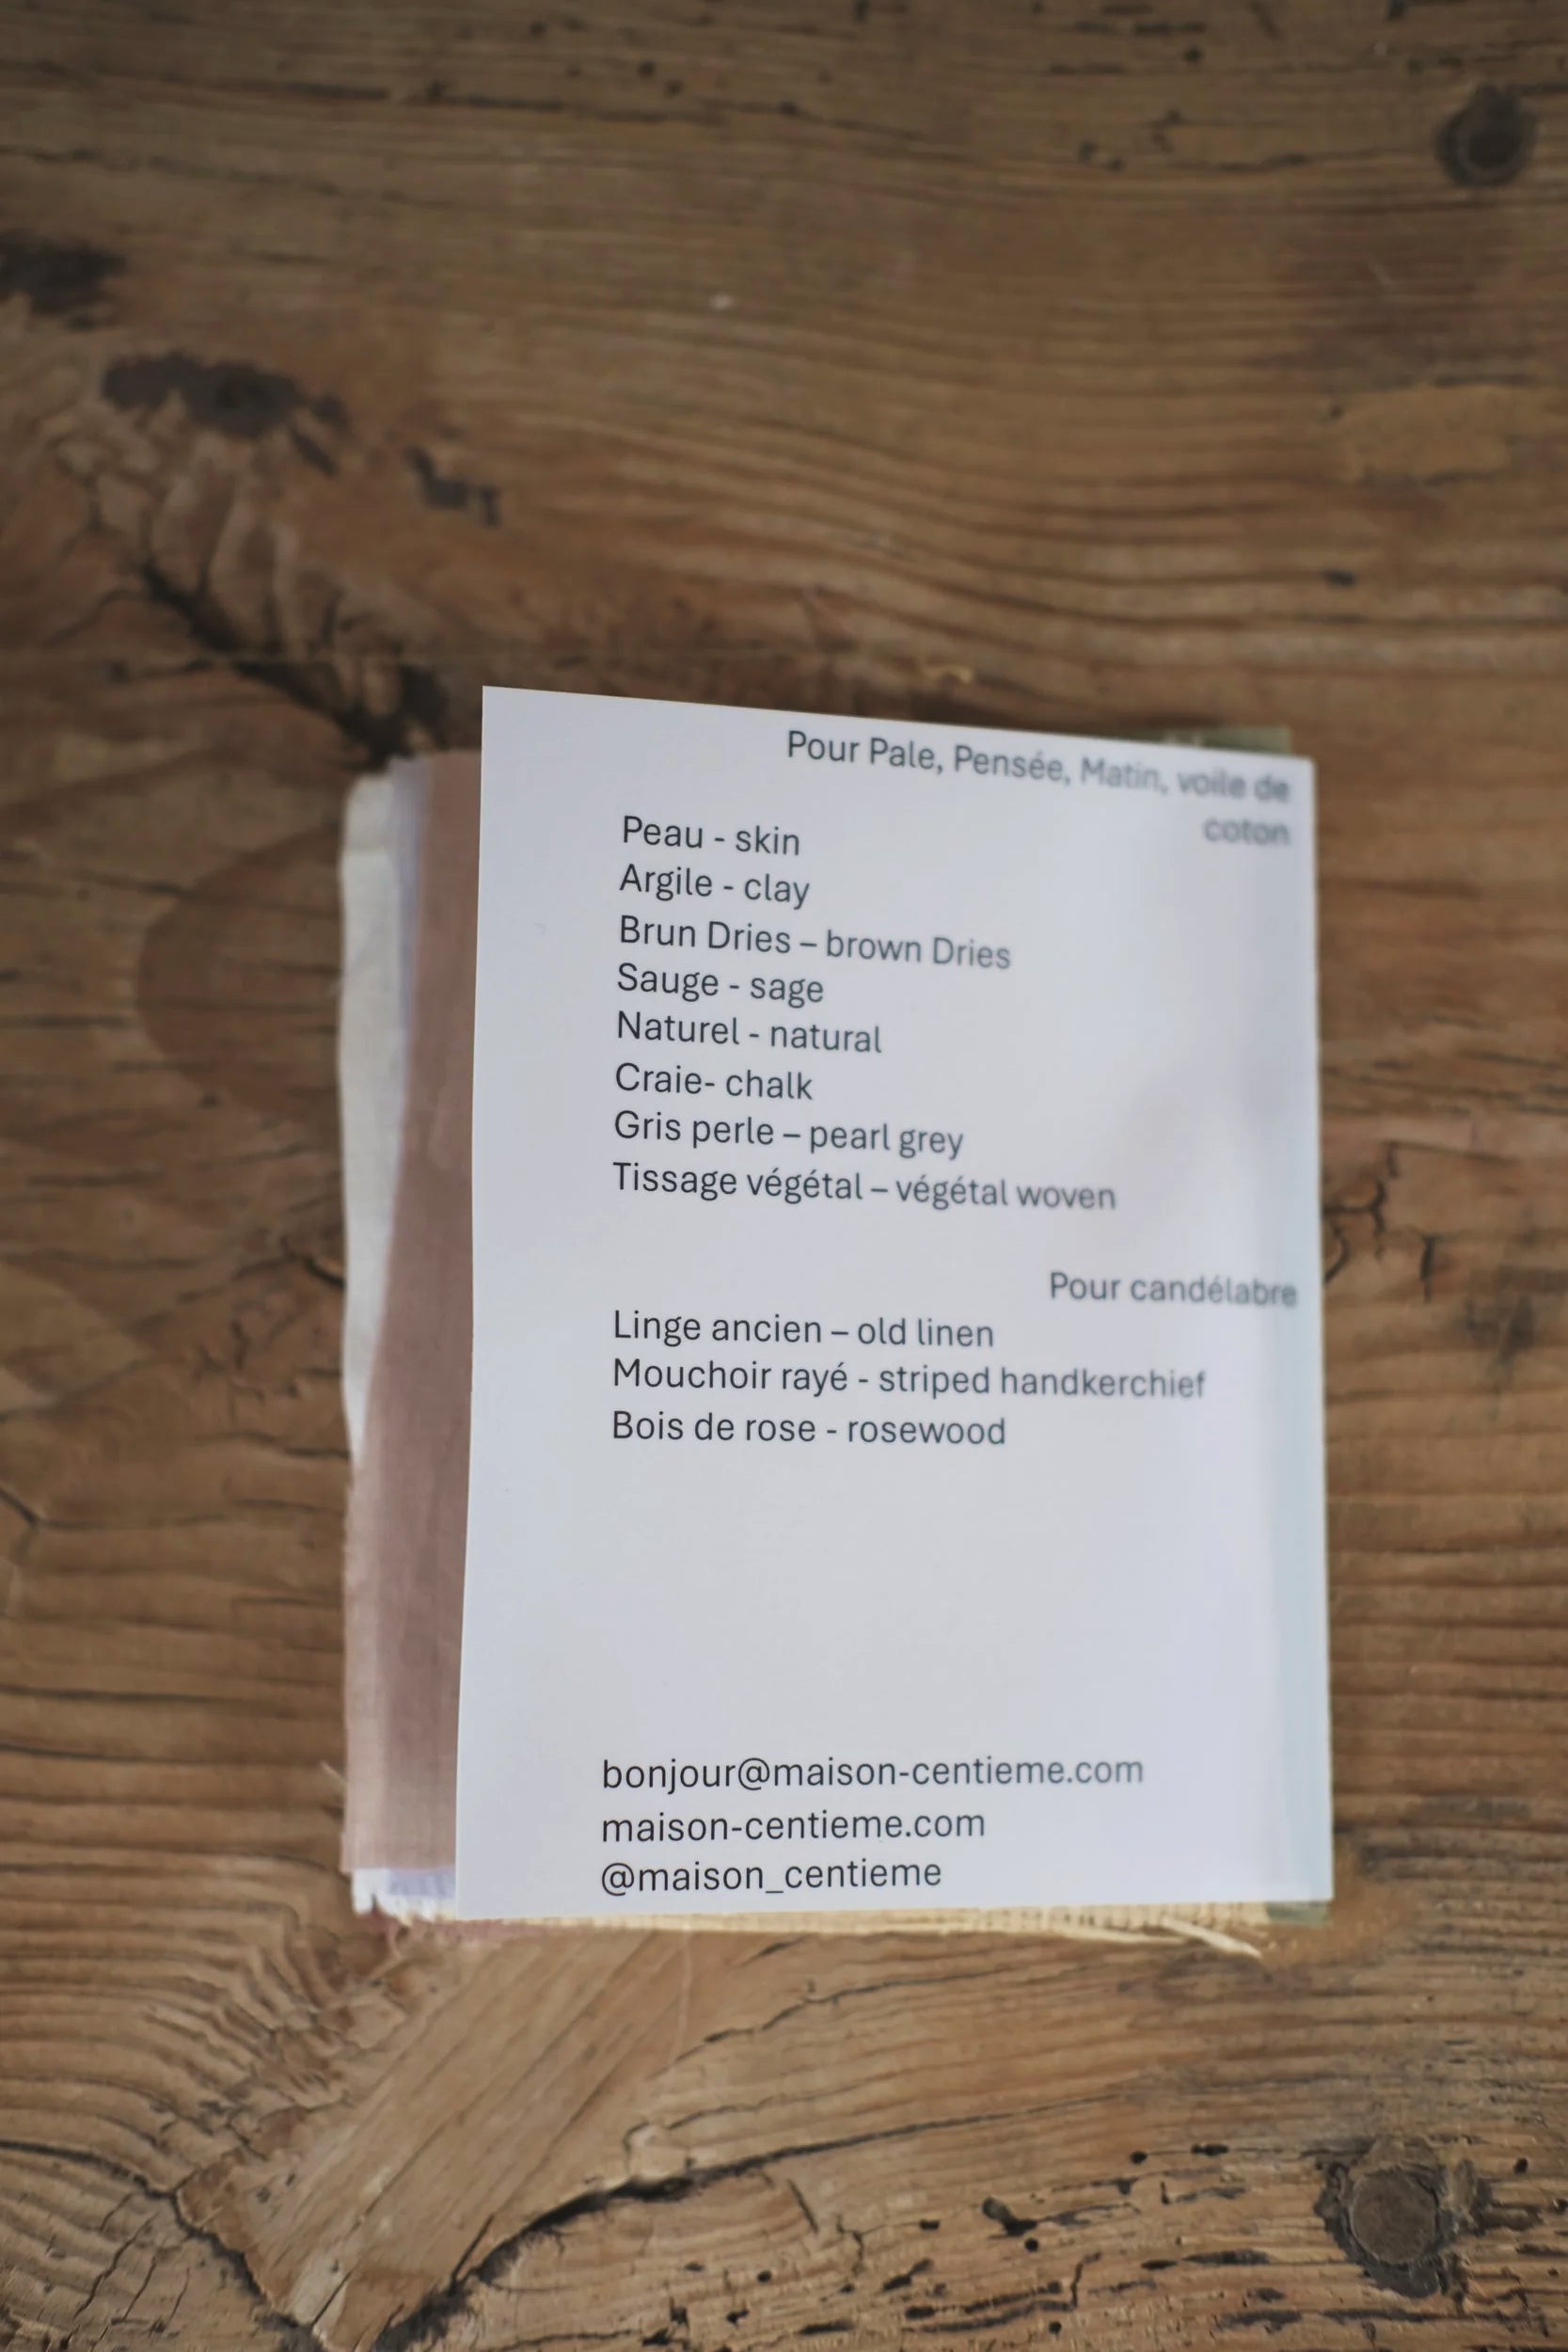 Pour Pale, Pensée, Matin, voile de
coton
Peau - skin
Argile - clay
Brun Dries – brown Dries
Sauge - sage
Naturel - natural
Craie- chalk
Gris perle – pearl grey
Tissage végétal – végétal woven
Pour candélabre
Linge ancien – old linen
Mouchoir rayé - striped handkerchief
Bois de rose - rosewood
bonjour@maison-centieme.com
maison-centieme.com
@maison_centieme